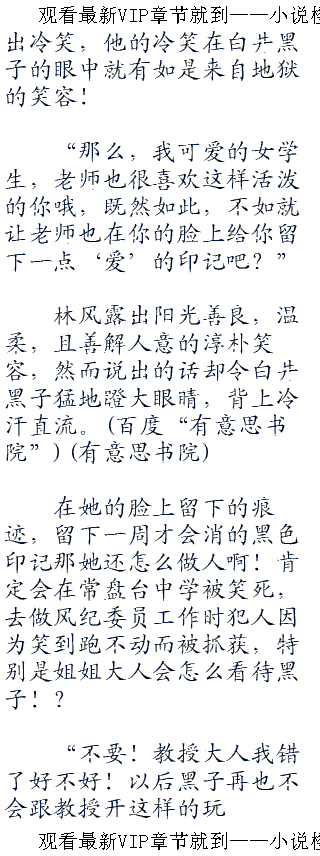 观看最新VIP章节就到——小说
出冷笑，他的冷笑在白井黑
子的眼中就有如是来自地狱
的笑容！
“那么，我可爱的女学
生，老师也很喜欢这样活泼
的你哦，既然如此，不如就
让老师也在你的脸上给你留
下一点‘爱’的印记吧？”
林风露出阳光善良，温
柔，且善解人意的淳朴笑
容，然而说出的话却令白井
黑子猛地瞪大眼睛，背上冷
汗直流。(百度“有意思书
院”)(有意思书院)
在她的脸上留下的痕
迹，留下一周才会消的黑色
印记那她还怎么做人啊！肯
定会在常盘台中学被笑死，
去做风纪委员工作时犯人因
为笑到跑不动而被抓获，特
别是姐姐大人会怎么看待黑
子！？
“不要！教授大人我错
了好不好！以后黑子再也不
会跟教授开这样的玩
观看最新VIP章节就到——小说